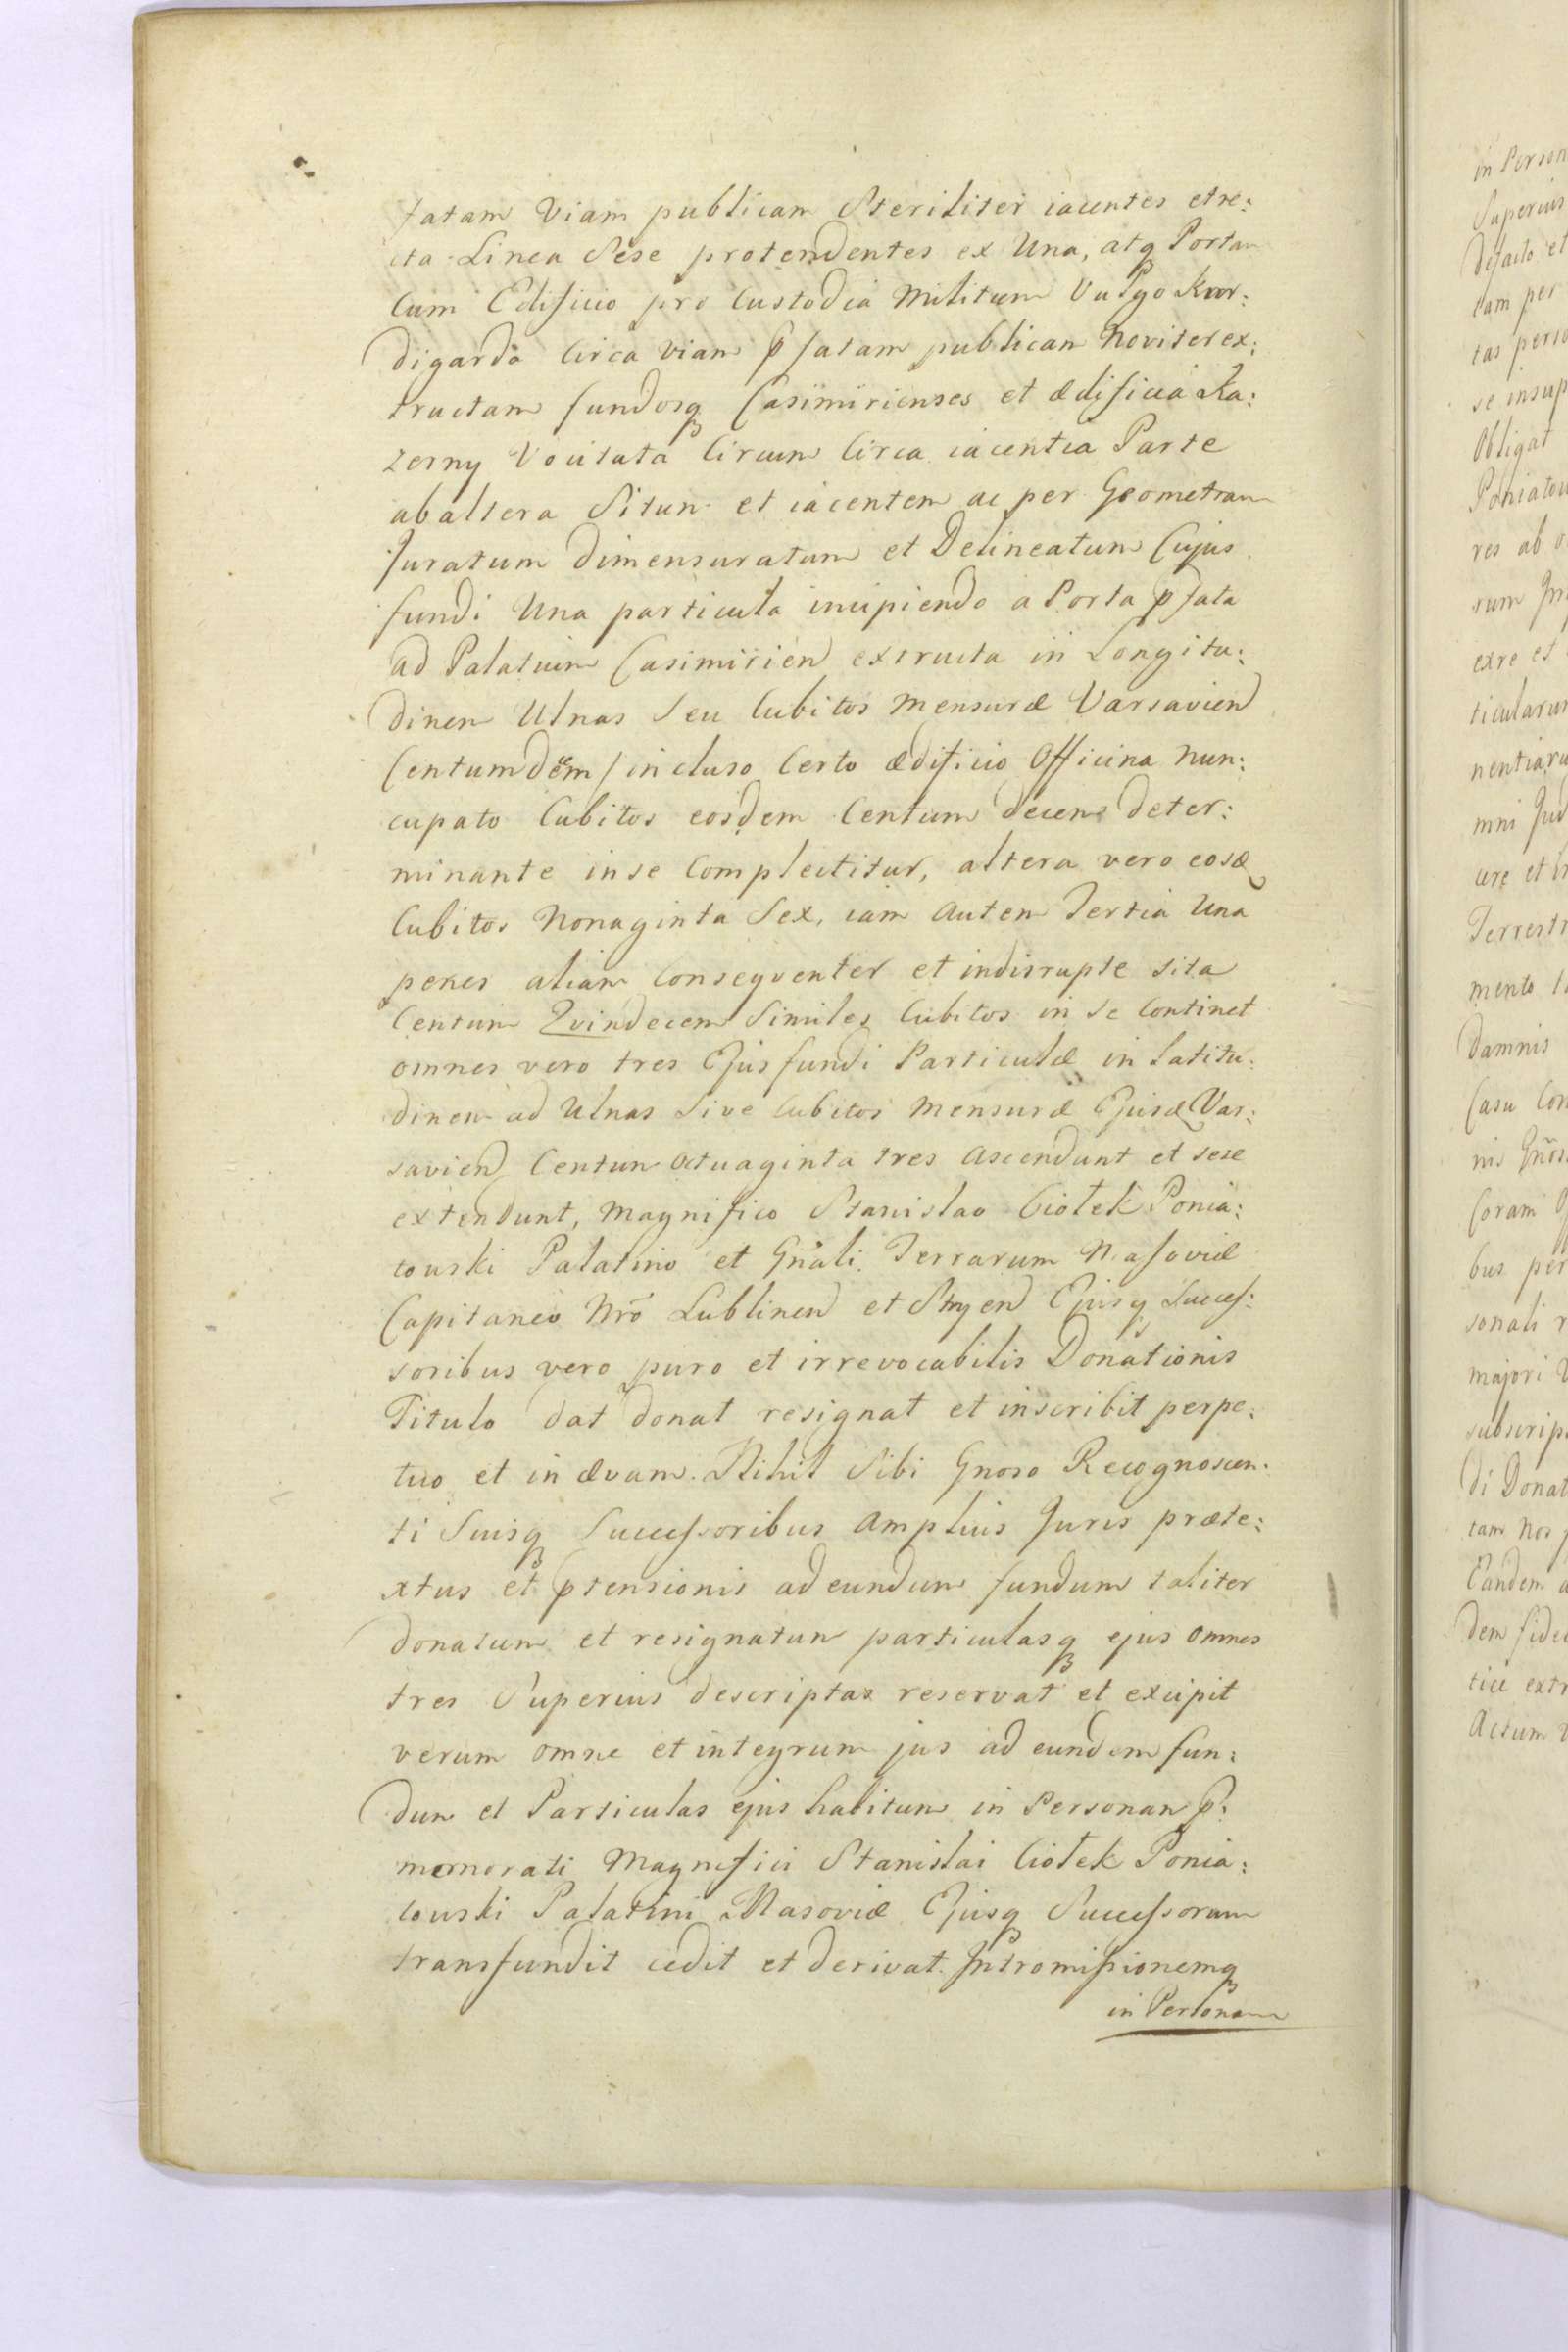 fatam Viam publicam Steriliter iacentes et re:
cta Linea Sese protendentes ex Una, atq Portam
Cum Edificio pro Custodia Militum Vulgo Kwor:
digarda Circa Viam p̄fatam publicam Noviter ex:
tructam fundosq Casimirienses et ædificia Ka:
zerny Vocitata Circum Circa iacentia Parte
ab altera Situm et iacentem ac per Geometram
Juratum dimensuratum et Delineatum Cujus
fundi Una particula incipiendo a Porta p̄fata
ad Palatium Casimirien extructa in Longitu:
dinem Ulnas Seu Cubitos Mensuræ Varsavien
Centum dem / incluso Certo ædificio Officina Nun:
cupato Cubitos eosdem Centum decem deter:
minante in se Complectitur, altera vero eosd
Cubitos Nonaginta Sex, iam Autem Tertia Una
penes aliam Conseqventer et indisrupte sita
Centum Qvindecem Similes Cubitos in se Continet
omnes vero tres Ejus fundi Particulæ in Latitu:
dinem ad Ulnas Sive Cubitos Mensuræ Ejusd Var:
savien Centum Octuaginta tres Ascendunt et sese
extendunt, Magnifico Stanislao Ciołek Ponia:
towski Palatino et Gnali Terrarum Masoviæ
Capitaneo Nro Lublinen et Stryen Ejusq Succes:
soribus vero puro et irrevocabilis Donationis
Titulo dat donat resignat et inscribit perpe:
tuo et in ævam. Nihil Sibi Gnoso Recognoscen:
ti Suisq Successoribus Amplius Juris præte:
xtus et p̄tensionis ad eundum fundum taliter
donatum et resignatum particulasq ejus Omnes
tres Superius descriptas reservat et excipit
verum omne et integrum jus ad eundem fun:
dum et Particulas ejus habitum in Personam p̄:
memorati Magnifici Stanislai Ciołek Ponia:
towski Palatini Masoviæ Ejusq Successorum
transfundit cedit et derivat. Intromissionemq
in Personam
in Person
Superius
Defacto et
tam per
tas perso
se insup
Obligat
Poniatow
res ab o
rum
exre et
ticularum
nentiaru
mni Jud
ure et
Terrestr
mento
Damnis
Casu Con
nis Gnos
Coram
bus per
sonali r
majori V
subscrip
di Donat
tam Nos
Eandem a
dem fide
tice extr
Actum